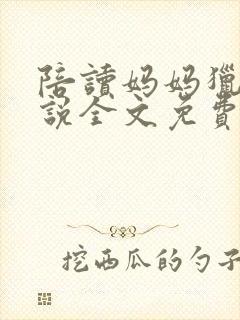 陪讀妈妈獵
說全文免費
挖西瓜的勺子